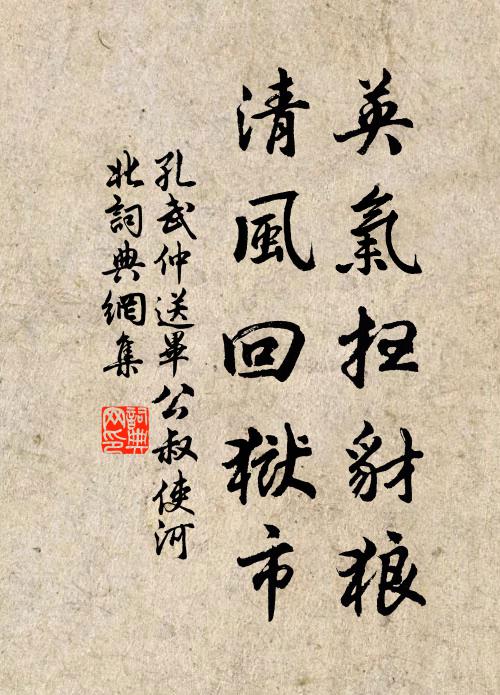 英氣扫豺狼
清風回獄市
孔武仲送畢公叔使河
北詞典網集
詞典网印